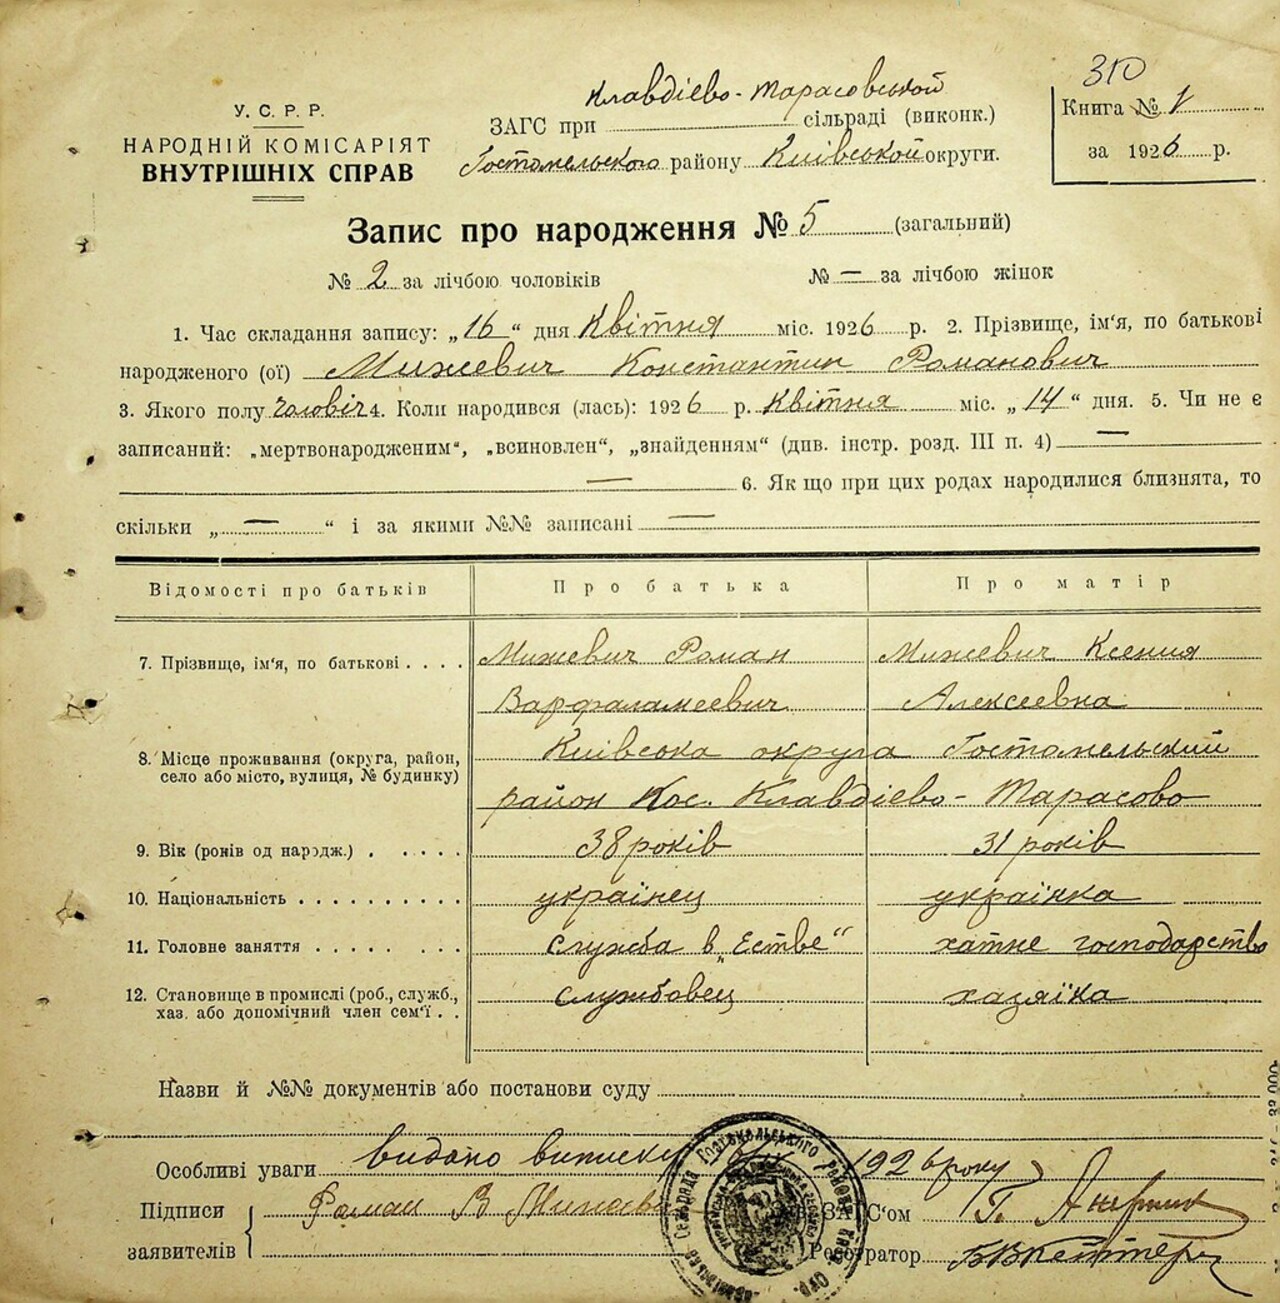 310
У. С. Р. Р.
НАРОДНІЙ КОМІСАРІЯТ
ВНУТРІШНІХ СПРАВ
Клавдієво-Тарасовськой
ЗАГС при сільраді (виконк.)
Гостомельского району Київськой округи.
Книга № 1
за 1926 р.
Запис про народження № 5 (загальний)
№ 2 за лічбою чоловіків № — за лічбою жінок
1. Час складання запису: „16“ дня Квітня міс. 1926 р. 2. Прізвище, ім‘я, по батькові
народженого (ої) Мижевич Константин Романович
3. Якого полу чоловіч 4. Коли народився (лась): 1926 р. Квітня міс. „14“ дня. 5. Чи не є
записаний: „мертвонародженим“, „всиновлен“, „знайденням“ (див. інстр. розд. III п. 4) —
— 6. Як що при цих родах народилися близнята, то
скільки „ — “ і за якими №№ записані —
Відомості про батьків Про батька Про матір
7. Прізвище, ім‘я, по батькові . . . . Мижевич Роман Мижевич Ксения
Варфаламеевич Алексеевна
8. Місце проживання (округа, район, Київська округа Гостомельский
село або місто, вулиця, № будинку) район Пос. Клавдієво-Тарасово
9. Вік (років од народж.) . . . . . 38 років 31 років
10. Національність . . . . . . . . . . українец українка
11. Головне заняття . . . . . . . . служба в „Естве“ хатне господарство
12. Становище в промислі (роб., служб., службовец хазяїка
хаз. або допомічний член сем‘ї . .
Назви й №№ документів або постанови суду
Особливі уваги видано виписку 1926 року
Підписи Роман В Мижеви ЗАГС‘ом Г.
заявителів Реєстратор